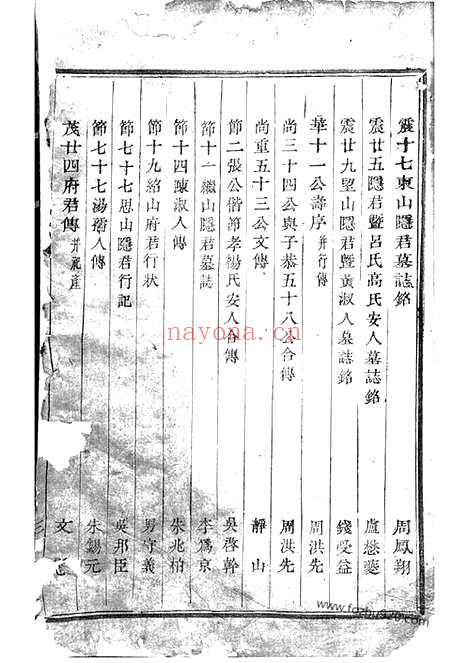 震十七東山隱君墓誌銘 周鳳翔
震廿五隱君暨呂氏高氏安人墓誌銘 盧懋
震廿九望山隱君暨黃淑人墓誌銘 錢受益
華十一公壽序 并行傳 周洪先
尚三十四公與子恭五十八公合傳 周洪先
尚重五十三公文傳 靜山
節二張公偕節孝楊氏安人合傳 吳啓幹
節十一繼山隱君墓誌 李為京
節十四陳淑人傳 朱兆柏
節十九紹山府君行狀 男守義
節七十七思山隱君行記 吳邦臣
節七十七湯孺人傳 朱錫元
茂廿四府君傳 并祀產 文
nayona.cn